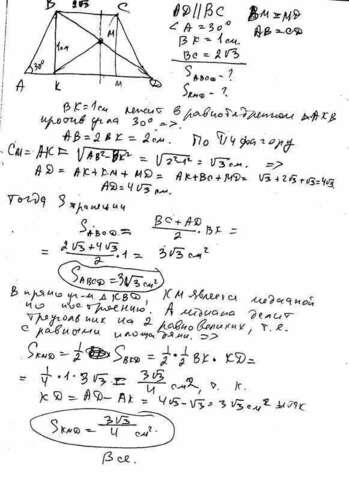 B 2√3 C
1см
M
30°
A K D
AD || BC BM = MD
∠A = 30° AB = CD
BK = 1 см
BC = 2√3
S_ABCD - ?
S_KMD - ?
BK = 1 см лежит в Δ AKB
против угла 30° =>.
AB = 2BK = 2 см. По Пифагору
= AK = √AB² - BK² = √2² - 1² = √3 см. =>
AD = AK + KM + MD = AK + BC + MD = √3 + 2√3 + √3 = 4√3
AD = 4√3 см.
Тогда S трапеции
S_ABCD = BC + AD / 2 · BK =
= 2√3 + 4√3 / 2 · 1 = 3√3 см²
S_ABCD = 3√3 см²
В прямоуг-м Δ KBD, KM является медианой
по построению. А медиана делит
треугольник на 2 равновеликих, т.е.
с равными площадями. =>
S_KMD = 1/2 S_BKD = 1/2 · 1/2 BK · KD =
= 1/4 · 1 · 3√3 = 3√3/4 см², т. к.
KD = AD - AK = 4√3 - √3 = 3√3 см
S_KMD = 3√3/4 см².
Все.